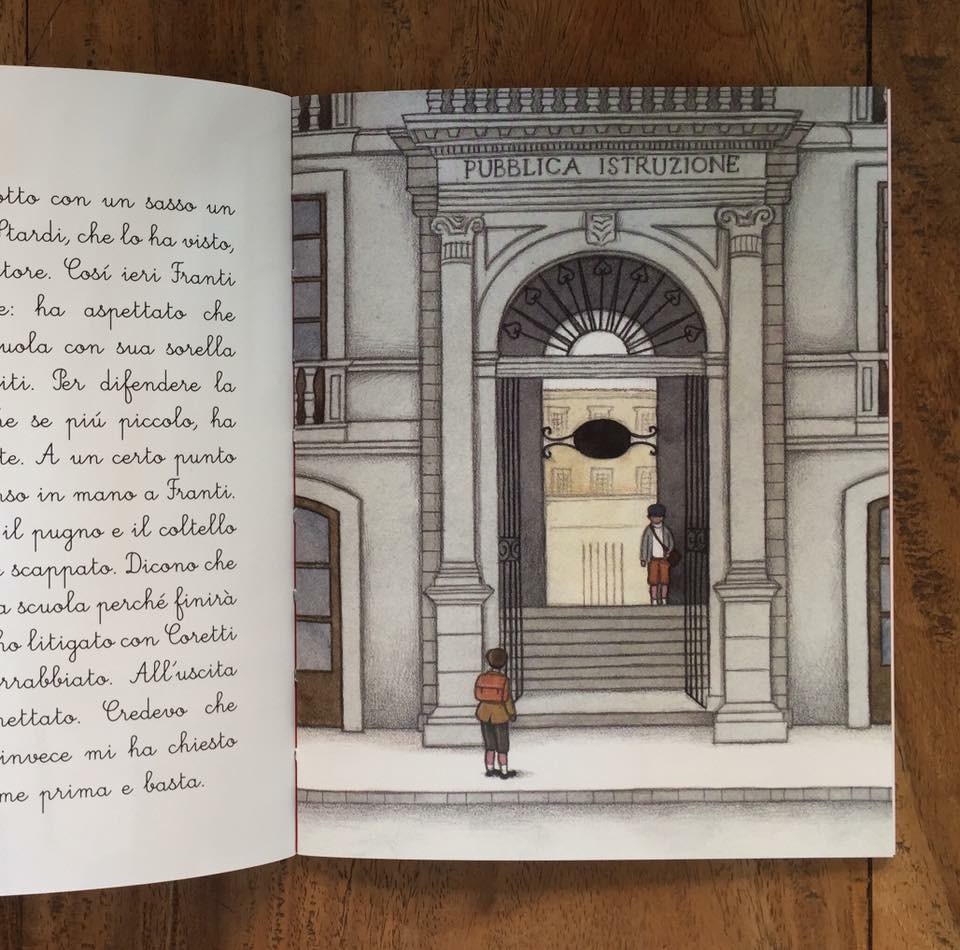 otto con un sasso un
Stardi, che lo ha visto,
tore. Cosí ieri Franti
e: ha aspettato che
uola con sua sorella
iti. Per difendere la
he se piú piccolo, ha
te. A un certo punto
rso in mano a Franti.
il pugno e il coltello
è scappato. Dicono che
a scuola perché finirà
ho litigato con Coretti
rrabbiato. All'uscita
pettato. Credevo che
invece mi ha chiesto
me prima e basta.
PUBBLICA ISTRUZIONE